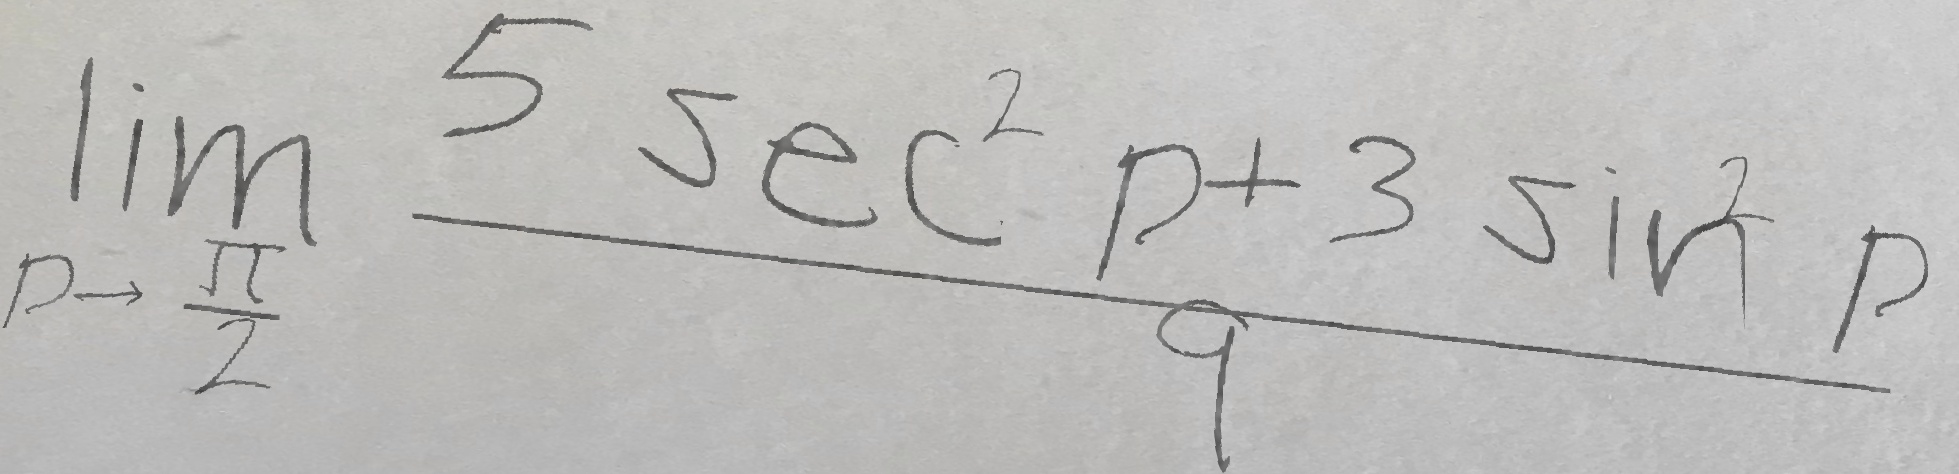 lim p→π/2 (5 sec² p + 3 sin² p)/9